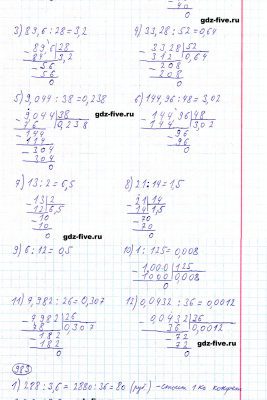 gdz-five.ru
40
0
3) 89,6 : 28 = 3,2
4) 33,28 : 52 = 0,64
89,6 28
84 3,2
56
56
0
33,28 52
312 0,64
208
208
0
5) 9,044 : 38 = 0,238
6) 144,96 : 48 = 3,02
9,044 38
76 0,238
144
114
304
304
0
144,96 48
144 3,02
96
96
0
gdz-five.ru
7) 13 : 2 = 6,5
8) 21 : 14 = 1,5
13 2
12 6,5
10
10
0
21 14
14 1,5
70
70
0
gdz-five.ru
9) 6 : 12 = 0,5
10) 1 : 125 = 0,008
1,000 125
1000 0,008
0
gdz-five.ru
11) 7,982 : 26 = 0,307
12) 0,0432 : 36 = 0,0012
7,982 26
78 0,307
182
182
0
0,0432 36
36 0,0012
72
72
0
983
1) 288 : 3,6 = 2880 : 36 = 80 (руб) - стоит 1 кг конфет